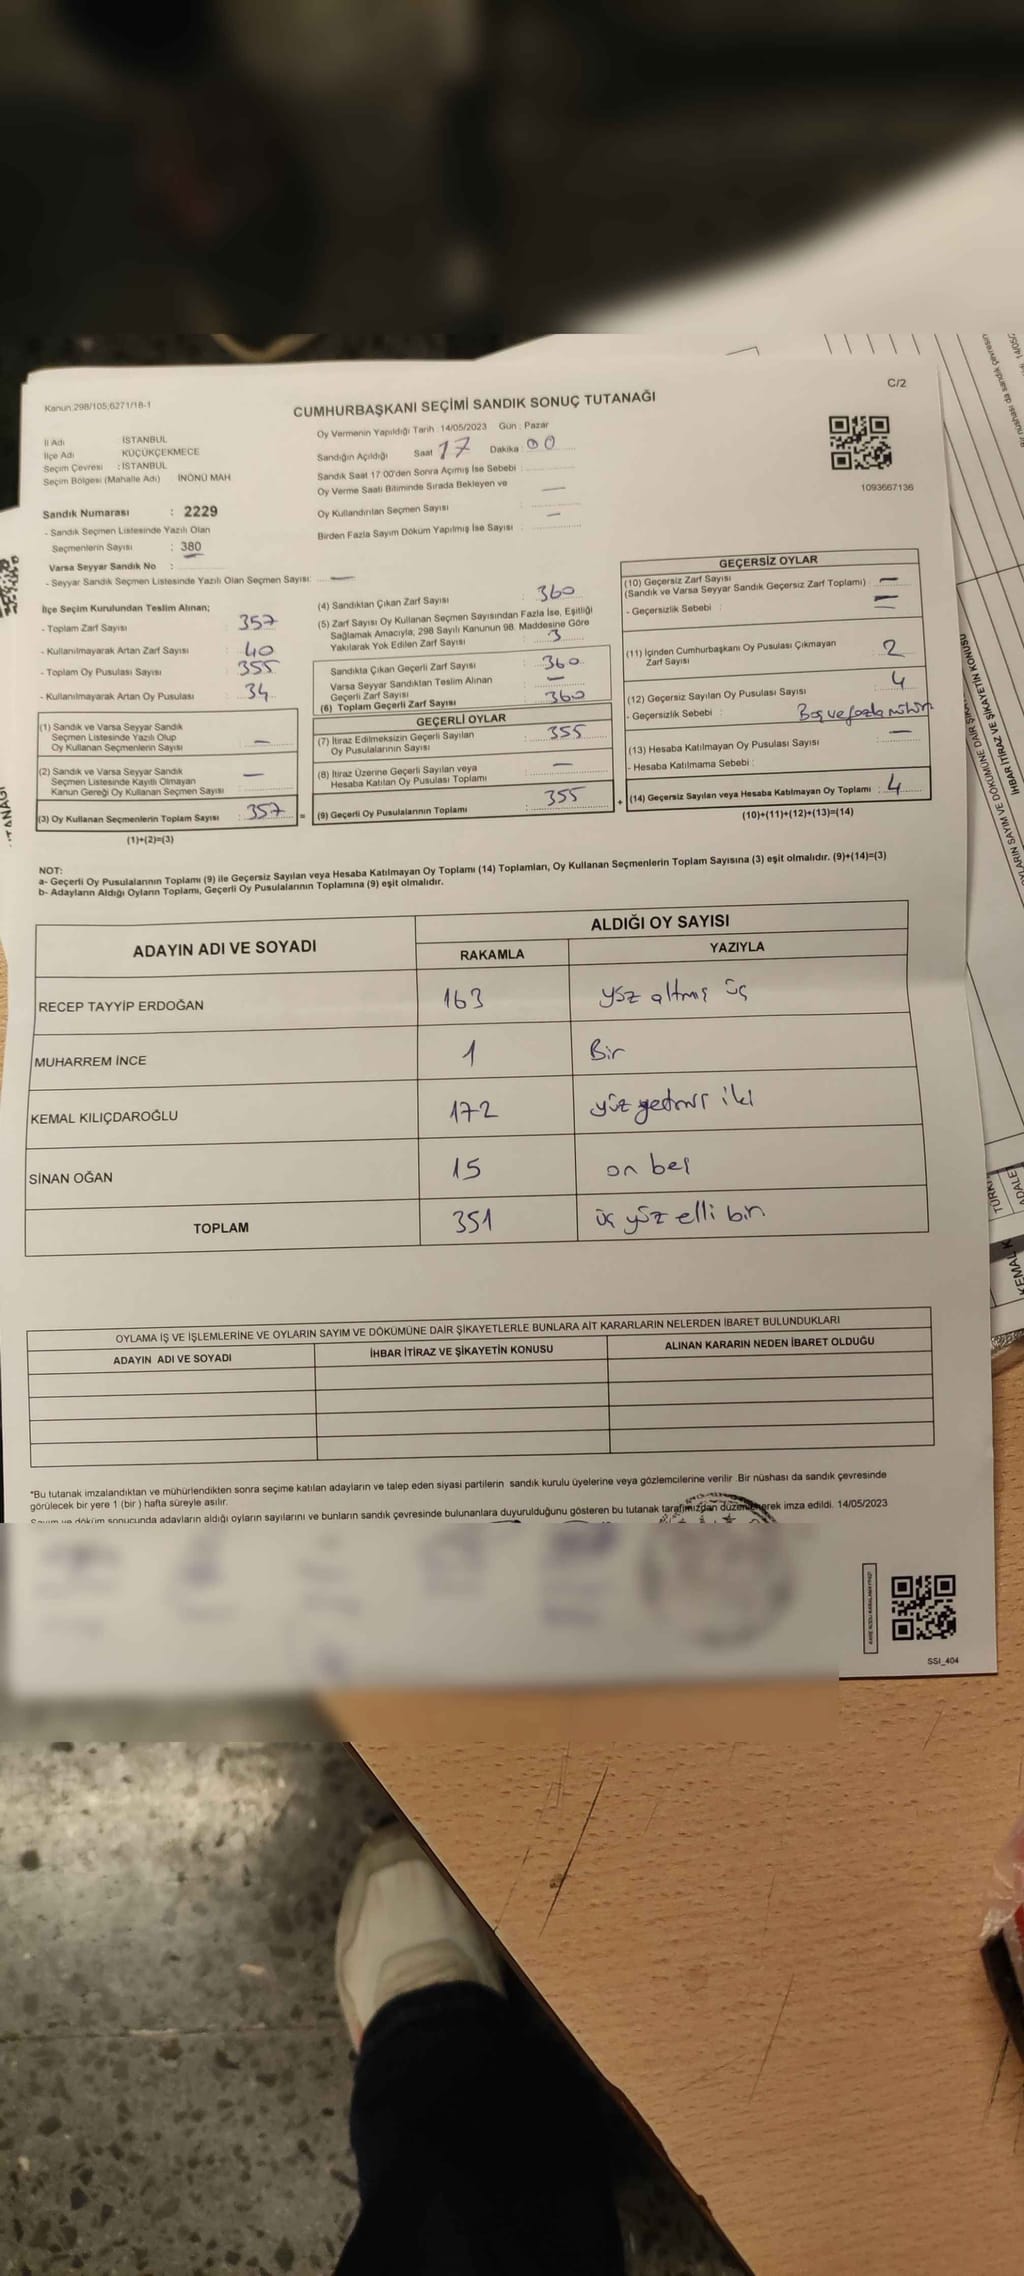 C/2
Kanun:298/105;6271/18-1
CUMHURBAŞKANI SEÇİMİ SANDIK SONUÇ TUTANAĞI
İl Adı İSTANBUL
İlçe Adı KÜÇÜKÇEKMECE
Seçim Çevresi : İSTANBUL
Seçim Bölgesi (Mahalle Adı) İNÖNÜ MAH
Sandık Numarası : 2229
- Sandık Seçmen Listesinde Yazılı Olan
Seçmenlerin Sayısı : 380
Varsa Seyyar Sandık No :
- Seyyar Sandık Seçmen Listesinde Yazılı Olan Seçmen Sayısı: —
Oy Vermenin Yapıldığı Tarih : 14/05/2023 Gün : Pazar
Sandığın Açıldığı Saat 17 Dakika : 00
Sandık Saat 17:00'den Sonra Açımış İse Sebebi :
Oy Verme Saati Bitiminde Sırada Bekleyen ve —
Oy Kullandırılan Seçmen Sayısı :
Birden Fazla Sayım Döküm Yapılmış İse Sayısı : —
1093667136
İlçe Seçim Kurulundan Teslim Alınan;
- Toplam Zarf Sayısı : 357
- Kullanılmayarak Artan Zarf Sayısı : 40
- Toplam Oy Pusulası Sayısı : 355
- Kullanılmayarak Artan Oy Pusulası : 34
(1) Sandık ve Varsa Seyyar Sandık
Seçmen Listesinde Yazılı Olup
Oy Kullanan Seçmenlerin Sayısı : —
(2) Sandık ve Varsa Seyyar Sandık
Seçmen Listesinde Kayıtlı Olmayan
Kanun Gereği Oy Kullanan Seçmen Sayısı : —
(3) Oy Kullanan Seçmenlerin Toplam Sayısı : 357 =
(1)+(2)=(3)
(4) Sandıktan Çıkan Zarf Sayısı : 360
(5) Zarf Sayısı Oy Kullanan Seçmen Sayısından Fazla İse, Eşitliği
Sağlamak Amacıyla; 298 Sayılı Kanunun 98. Maddesine Göre
Yakılarak Yok Edilen Zarf Sayısı : 3
Sandıkta Çıkan Geçerli Zarf Sayısı : 360
Varsa Seyyar Sandıktan Teslim Alınan
Geçerli Zarf Sayısı : —
(6) Toplam Geçerli Zarf Sayısı : 360
GEÇERLİ OYLAR
(7) İtiraz Edilmeksizin Geçerli Sayılan
Oy Pusulalarının Sayısı : 355
(8) İtiraz Üzerine Geçerli Sayılan veya
Hesaba Katılan Oy Pusulası Toplamı : —
(9) Geçerli Oy Pusulalarının Toplamı : 355 +
GEÇERSİZ OYLAR
(10) Geçersiz Zarf Sayısı : —
(Sandık ve Varsa Seyyar Sandık Geçersiz Zarf Toplamı) —
- Geçersizlik Sebebi :
(11) İçinden Cumhurbaşkanı Oy Pusulası Çıkmayan
Zarf Sayısı : 2
(12) Geçersiz Sayılan Oy Pusulası Sayısı : 4
- Geçersizlik Sebebi : Boş ve fazla mühür
(13) Hesaba Katılmayan Oy Pusulası Sayısı : —
- Hesaba Katılmama Sebebi :
(14) Geçersiz Sayılan veya Hesaba Katılmayan Oy Toplamı : 4
(10)+(11)+(12)+(13)=(14)
NOT:
a- Geçerli Oy Pusulalarının Toplamı (9) ile Geçersiz Sayılan veya Hesaba Katılmayan Oy Toplamı (14) Toplamları, Oy Kullanan Seçmenlerin Toplam Sayısına (3) eşit olmalıdır. (9)+(14)=(3)
b- Adayların Aldığı Oyların Toplamı, Geçerli Oy Pusulalarının Toplamına (9) eşit olmalıdır.
ADAYIN ADI VE SOYADI ALDIĞI OY SAYISI
RAKAMLA YAZIYLA
RECEP TAYYİP ERDOĞAN 163 yüz altmış üç
MUHARREM İNCE 1 Bir
KEMAL KILIÇDAROĞLU 172 yüz yetmiş iki
SİNAN OĞAN 15 on beş
TOPLAM 351 üç yüz elli bir
OYLAMA İŞ VE İŞLEMLERİNE VE OYLARIN SAYIM VE DÖKÜMÜNE DAİR ŞİKAYETLERLE BUNLARA AİT KARARLARIN NELERDEN İBARET BULUNDUKLARI
ADAYIN ADI VE SOYADI İHBAR İTİRAZ VE ŞİKAYETİN KONUSU ALINAN KARARIN NEDEN İBARET OLDUĞU
*Bu tutanak imzalandıktan ve mühürlendikten sonra seçime katılan adayların ve talep eden siyasi partilerin sandık kurulu üyelerine veya gözlemcilerine verilir. Bir nüshası da sandık çevresinde
görülecek bir yere 1 (bir ) hafta süreyle asılır.
Sayım ve döküm sonucunda adayların aldığı oyların sayılarını ve bunların sandık çevresinde bulunanlara duyurulduğunu gösteren bu tutanak tarafımızdan düzenlenerek imza edildi. 14/05/2023
SSI_404
İHBAR İTİRAZ VE ŞİKAYETİN KONUSU
KEMAL K